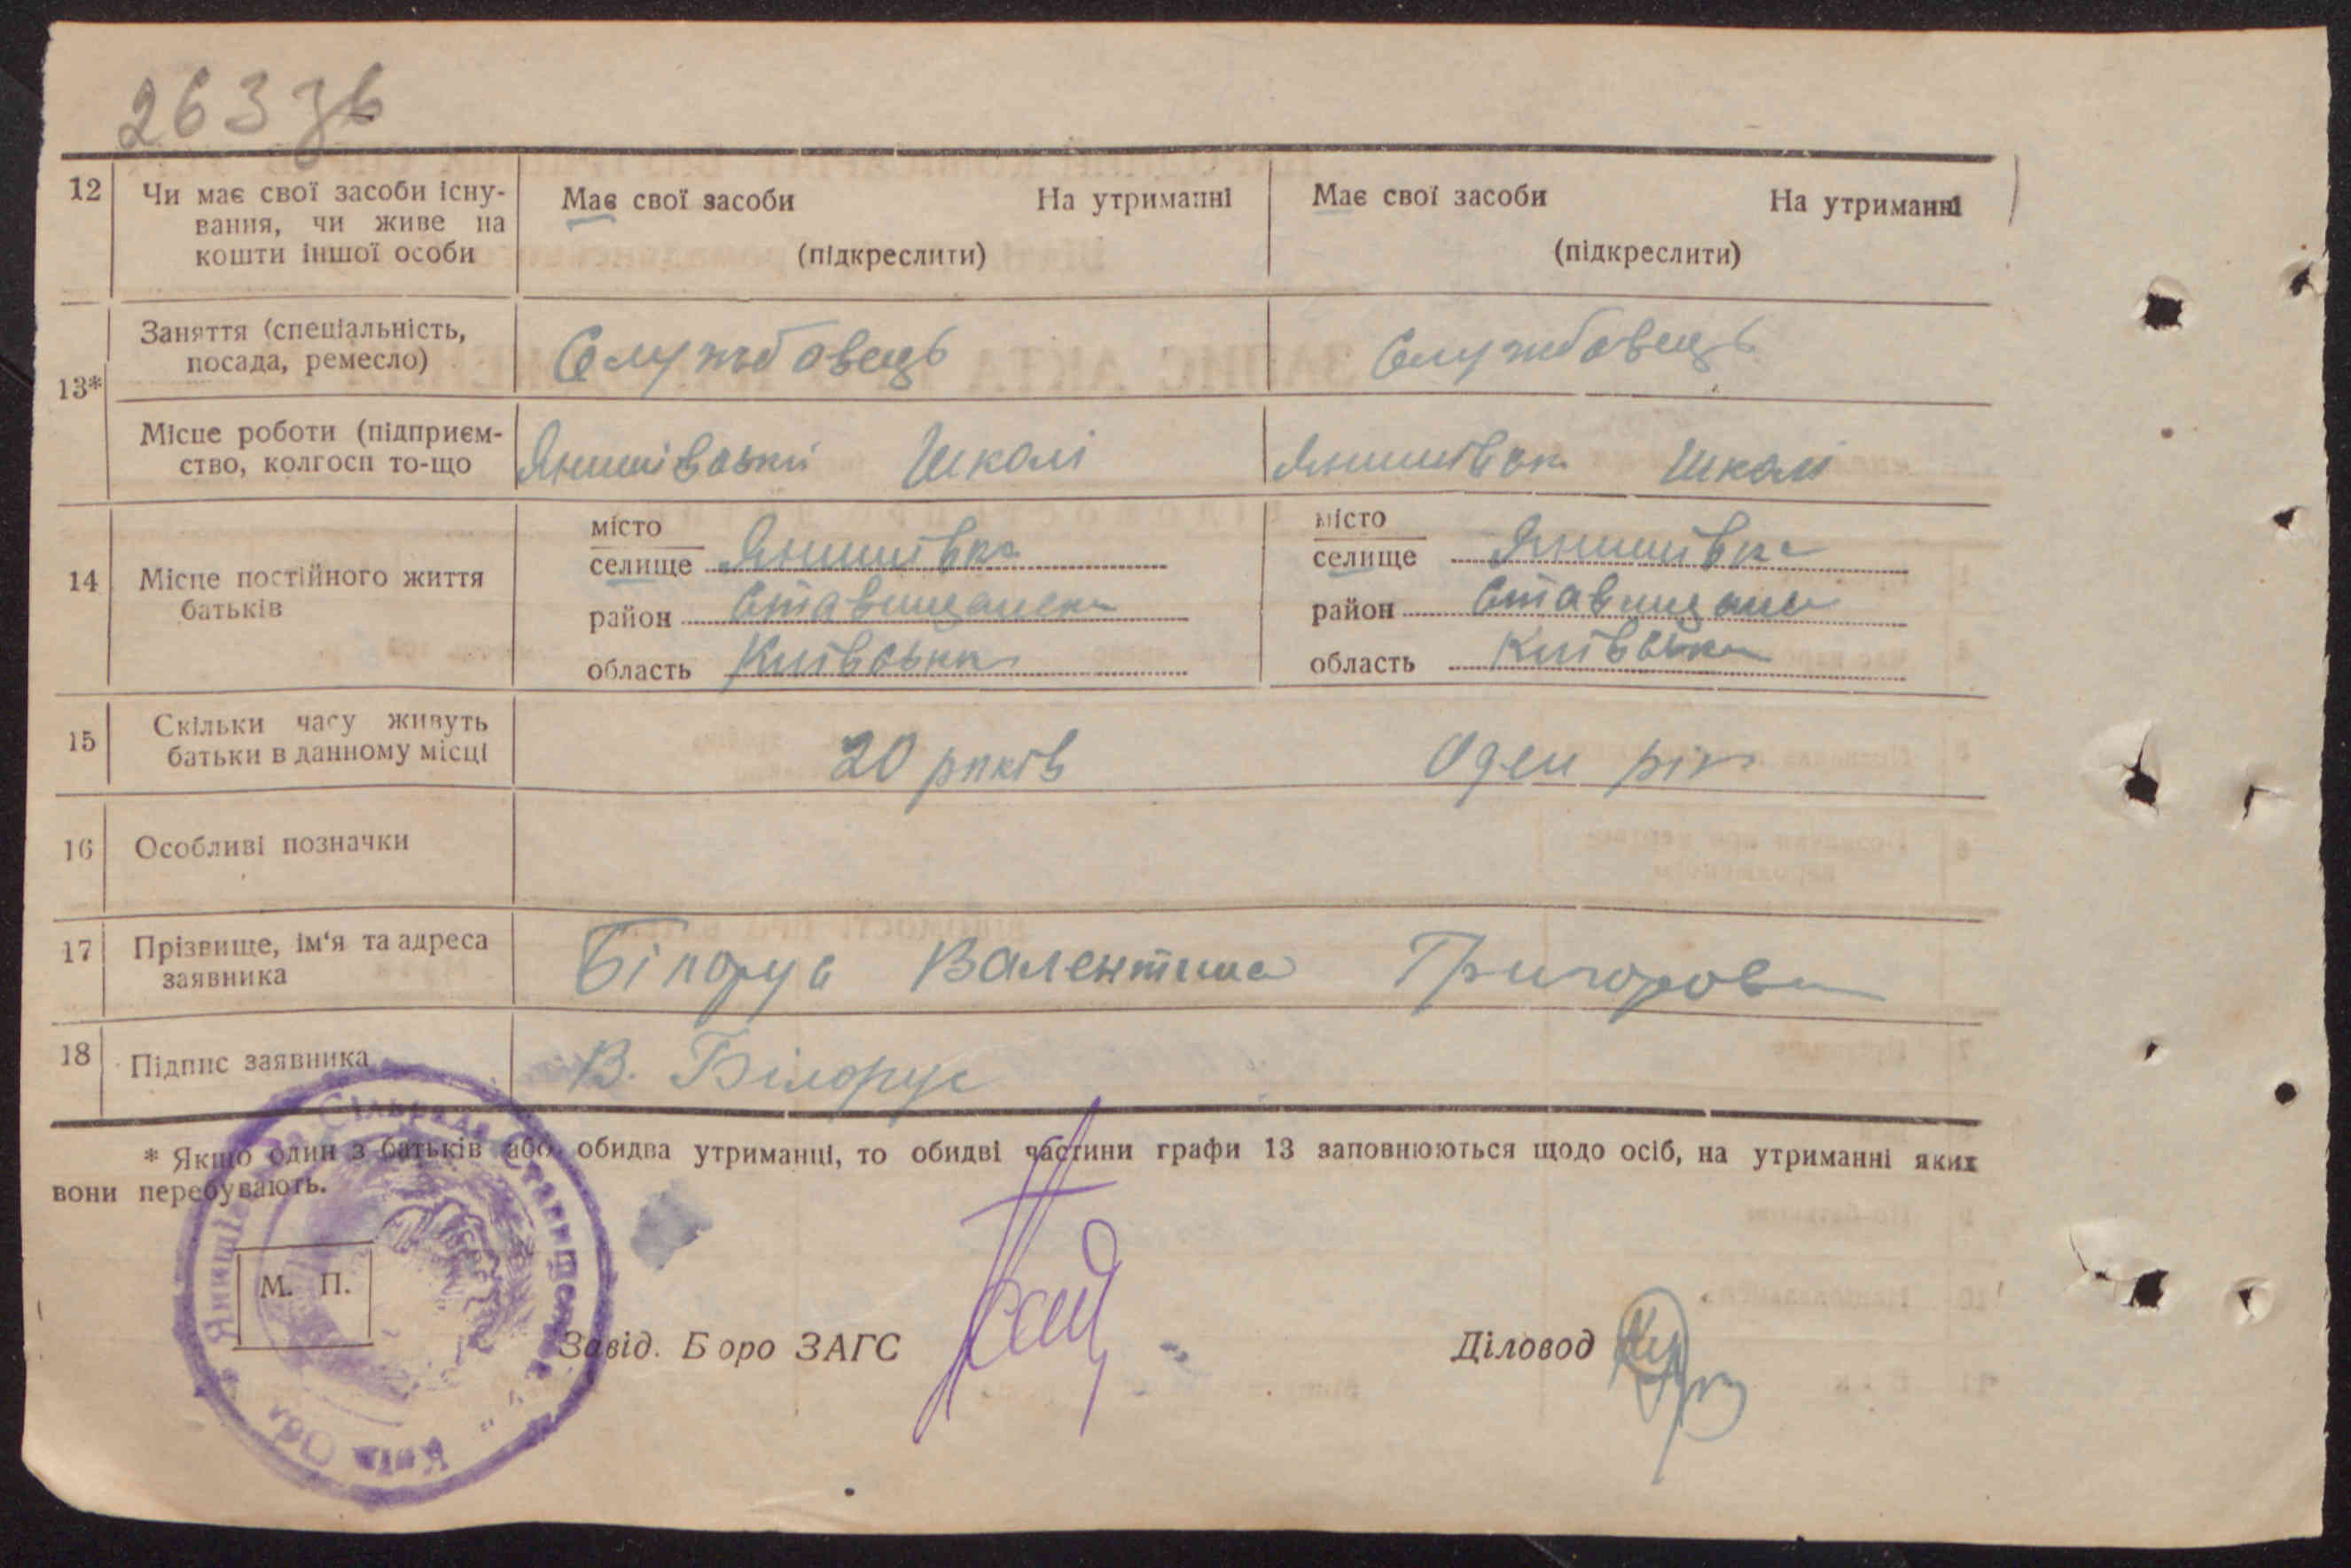 263 зв
12 Чи має свої засоби існу- Має свої засоби На утриманні Має свої засоби На утриманні
вання, чи живе на
кошти іншої особи (підкреслити) (підкреслити)
Заняття (спеціальність, Службовець Службовець
посада, ремесло)
13*
Місце роботи (підприєм- Янишівській Школі Янишівськ Школі
ство, колгосп то-що
місто місто
селище Янишівка селище Янишівка
14 Місце постійного життя
батьків район Ставищанська район Ставищанс
область Київська область Київська
15 Скільки часу живуть 20 років Оден рік
батьки в данному місці
16 Особливі позначки
17 Прізвище, ім'я та адреса Білорус Валентина Григоровна
заявника
18 Підпис заявника В. Білорус
* Якщо один з батьків або обидва утриманці, то обидві частини графи 13 заповнюються щодо осіб, на утриманні яких
вони перебувають.
М. П.
Завід. Бюро ЗАГС Діловод
Сільрада